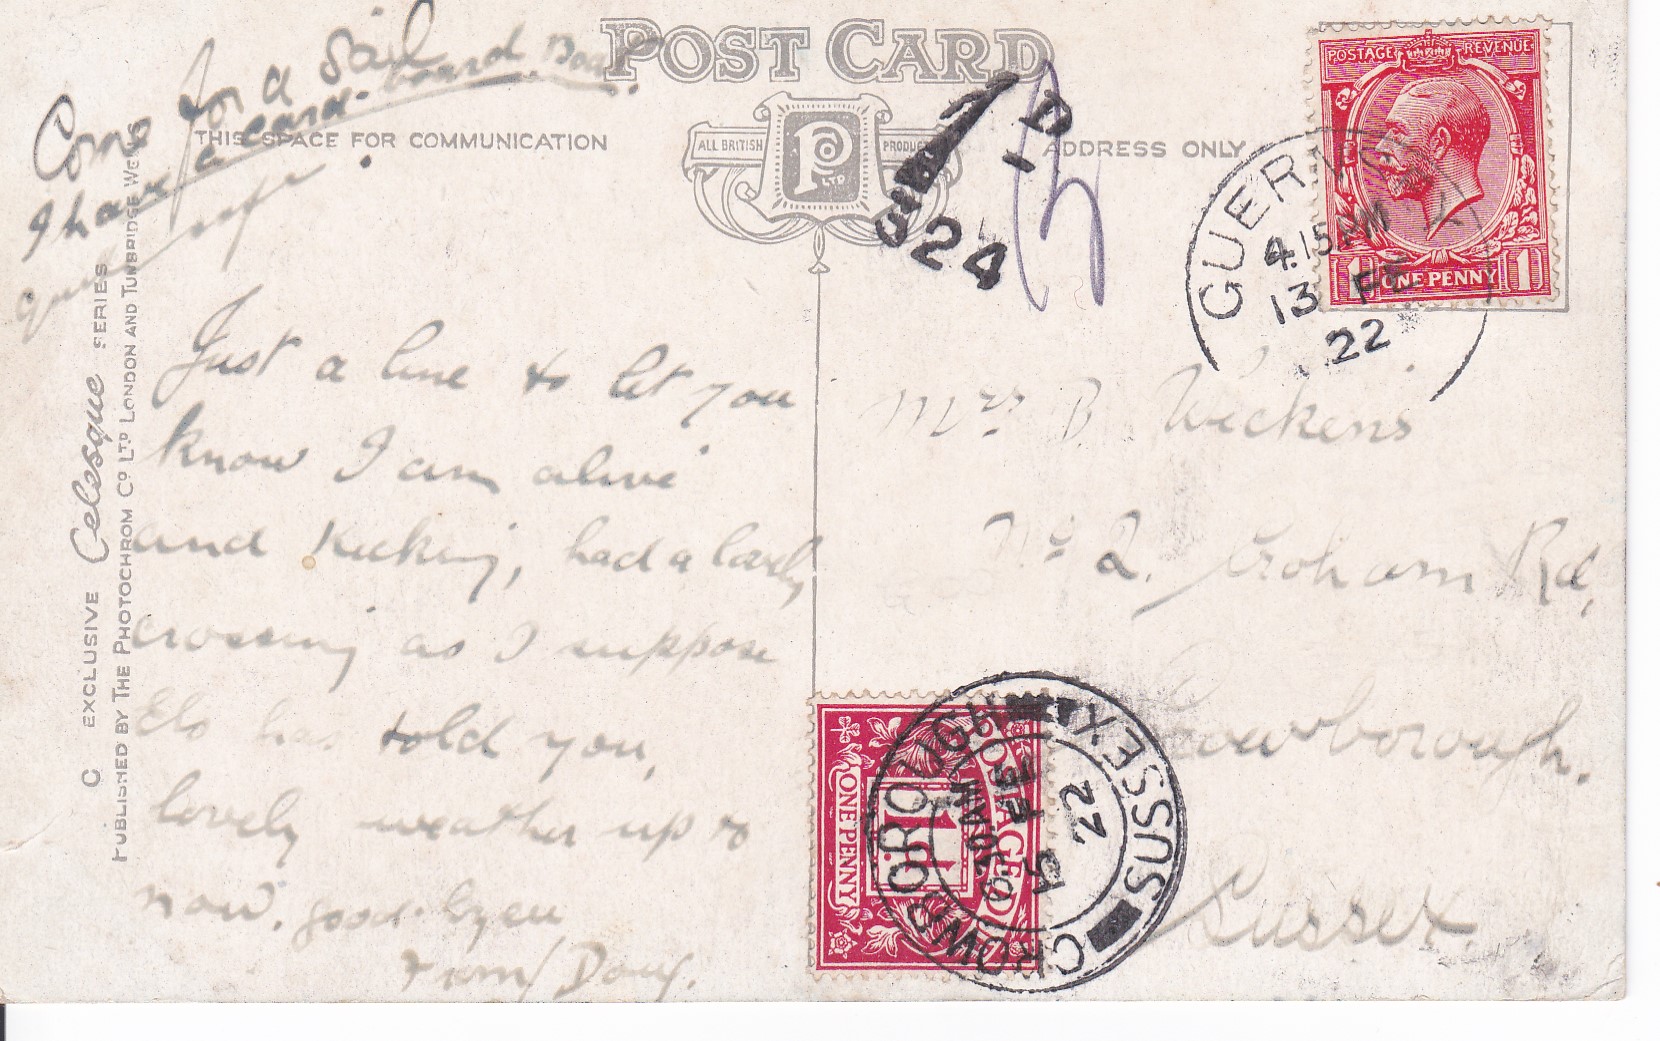 POST CARD
THIS SPACE FOR COMMUNICATION
ALL BRITISH PRODUCT
P LTD
ADDRESS ONLY
Come for a Sail
I have a card-board Boat.
Just a line to let you
know I am alive
and Kicking, had a lovely
crossing as I suppose
has told you,
lovely weather up to
now. good-byeu
from Doug.
C EXCLUSIVE Celesque SERIES
PUBLISHED BY THE PHOTOCHROM CO LTD LONDON AND TUNBRIDGE WELLS
1 D
324
POSTAGE REVENUE
1 ONE PENNY 1
GUERNSEY
4.15 PM
13 FE
22
Mrs B. Wickens
No 2. Croham Rd,
Crowborough.
Sussex
POSTAGE DUE
1d
ONE PENNY
CROWBOROUGH SUSSEX
15 FE
22